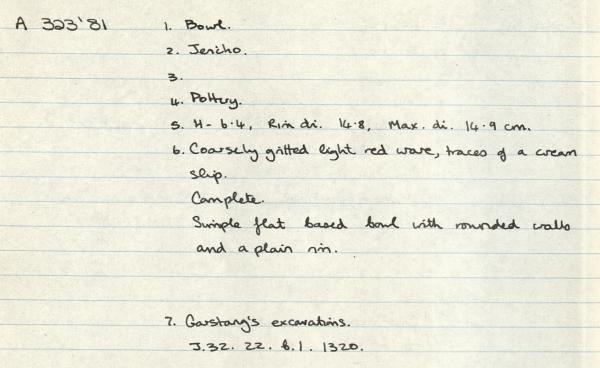 A 323'81
1. Bowl.
2. Jericho.
3.
4. Pottery.
5. H - 6.4, Rim di. 14.8, Max. di. 14.9 cm.
6. Coarsely gritted light red ware, traces of a cream
slip.
Complete.
Simple flat based bowl with rounded walls
and a plain rim.
7. Garstang's excavations.
J.32. 22. 6.1. 1320.